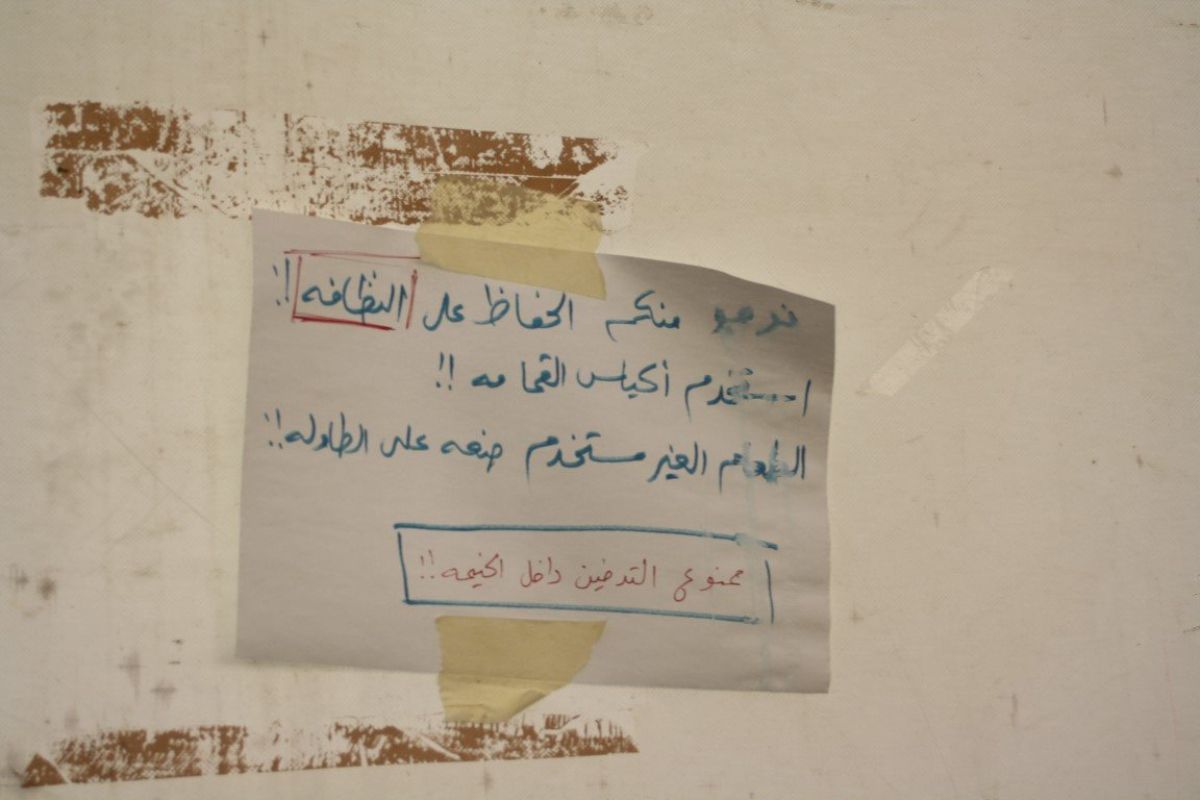 نرجو منكم الحفاظ على النظافه !!
استخدم أكياس القمامه !!
الطعام الغير مستخدم ضعه على الطاوله !!
ممنوع التدخين داخل الخيمه !!